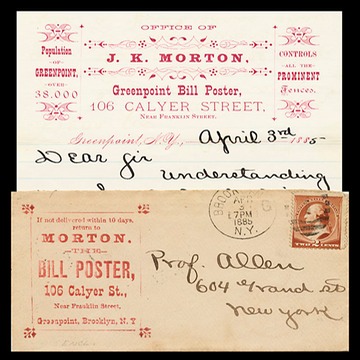 OFFICE OF
J. K. MORTON,
Greenpoint Bill Poster,
106 CALYER STREET,
NEAR FRANKLIN STREET.
Population
OF
GREENPOINT,
OVER
38.000
CONTROLS
ALL THE
PROMINENT
Fences.
Greenpoint, N.Y., April 3rd 1885
Dear Sir
Understanding
If not delivered within 10 days,
return to
MORTON.
THE
BILL POSTER,
106 Calyer St.,
Near Franklin Street,
Greenpoint, Brooklyn, N.Y
BROOKLYN
3
7PM
1885
N.Y.
Prof. Allen
604 Grand St
New York